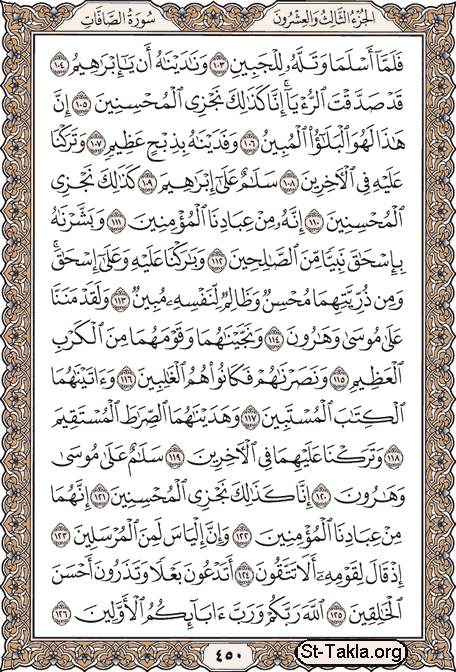 الجُزءُ الثَّالِثُ وَالعِشرُونَ سُورَةُ الصَّافَّاتِ
فَلَمَّآ أَسْلَمَا وَتَلَّهُۥ لِلْجَبِينِ ١٠٣ وَنَٰدَيْنَٰهُ أَن يَٰٓإِبْرَٰهِيمُ ١٠٤
قَدْ صَدَّقْتَ ٱلرُّءْيَآ ۚ إِنَّا كَذَٰلِكَ نَجْزِى ٱلْمُحْسِنِينَ ١٠٥ إِنَّ
هَٰذَا لَهُوَ ٱلْبَلَٰٓؤُا۟ ٱلْمُبِينُ ١٠٦ وَفَدَيْنَٰهُ بِذِبْحٍ عَظِيمٍ ١٠٧ وَتَرَكْنَا
عَلَيْهِ فِى ٱلْءَاخِرِينَ ١٠٨ سَلَٰمٌ عَلَىٰٓ إِبْرَٰهِيمَ ١٠٩ كَذَٰلِكَ نَجْزِى
ٱلْمُحْسِنِينَ ١١٠ إِنَّهُۥ مِنْ عِبَادِنَا ٱلْمُؤْمِنِينَ ١١١ وَبَشَّرْنَٰهُ
بِإِسْحَٰقَ نَبِيًّا مِّنَ ٱلصَّٰلِحِينَ ١١٢ وَبَٰرَكْنَا عَلَيْهِ وَعَلَىٰٓ إِسْحَٰقَ ۚ
وَمِن ذُرِّيَّتِهِمَا مُحْسِنٌ وَظَالِمٌ لِّنَفْسِهِۦ مُبِينٌ ١١٣ وَلَقَدْ مَنَنَّا
عَلَىٰ مُوسَىٰ وَهَٰرُونَ ١١٤ وَنَجَّيْنَٰهُمَا وَقَوْمَهُمَا مِنَ ٱلْكَرْبِ
ٱلْعَظِيمِ ١١٥ وَنَصَرْنَٰهُمْ فَكَانُوا۟ هُمُ ٱلْغَٰلِبِينَ ١١٦ وَءَاتَيْنَٰهُمَا
ٱلْكِتَٰبَ ٱلْمُسْتَبِينَ ١١٧ وَهَدَيْنَٰهُمَا ٱلصِّرَٰطَ ٱلْمُسْتَقِيمَ
١١٨ وَتَرَكْنَا عَلَيْهِمَا فِى ٱلْءَاخِرِينَ ١١٩ سَلَٰمٌ عَلَىٰ مُوسَىٰ
وَهَٰرُونَ ١٢٠ إِنَّا كَذَٰلِكَ نَجْزِى ٱلْمُحْسِنِينَ ١٢١ إِنَّهُمَا
مِنْ عِبَادِنَا ٱلْمُؤْمِنِينَ ١٢٢ وَإِنَّ إِلْيَاسَ لَمِنَ ٱلْمُرْسَلِينَ ١٢٣
إِذْ قَالَ لِقَوْمِهِۦٓ أَلَا تَتَّقُونَ ١٢٤ أَتَدْعُونَ بَعْلًا وَتَذَرُونَ أَحْسَنَ
ٱلْخَٰلِقِينَ ١٢٥ ٱللَّهَ رَبَّكُمْ وَرَبَّ ءَابَآئِكُمُ ٱلْأَوَّلِينَ ١٢٦
٤٥٠
St-Takla.org